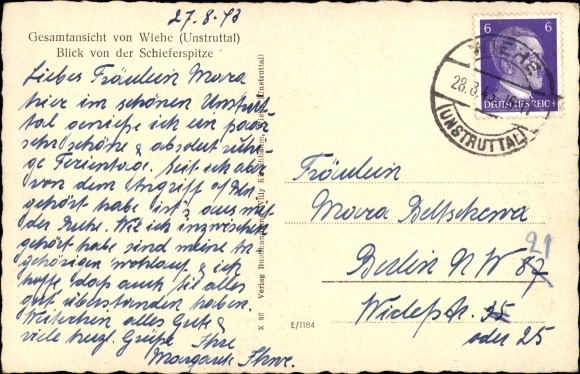 27.8.43
Gesamtansicht von Wiehe (Unstruttal)
Blick von der Schieferspitze
Liebes Fräulein Mara
hier im schönen Unstrut
tal genieße ich ein paar
sehr schöne & absolut ruhi-
ge Ferientage. Seit ich aber
von dem Angriff auf Bln
gehört habe ist's aus mit
der Ruhe. Wie ich inzwischen
gehört habe sind meine An-
gehörigen wohlauf & ich
hoffe, daß auch Sie alles
gut überstanden haben.
Weiterhin alles Gute &
viele herzl. Grüße Ihre
Margarete
X 86 Verlag Buchhandlung Willy Wiehe (Unstruttal)
E/1184
6 6
DEUTSCHES REICH
WIEHE
28.8.43
(UNSTRUTTAL)
Fräulein
Mara
Berlin NW 87
21
35
oder 25